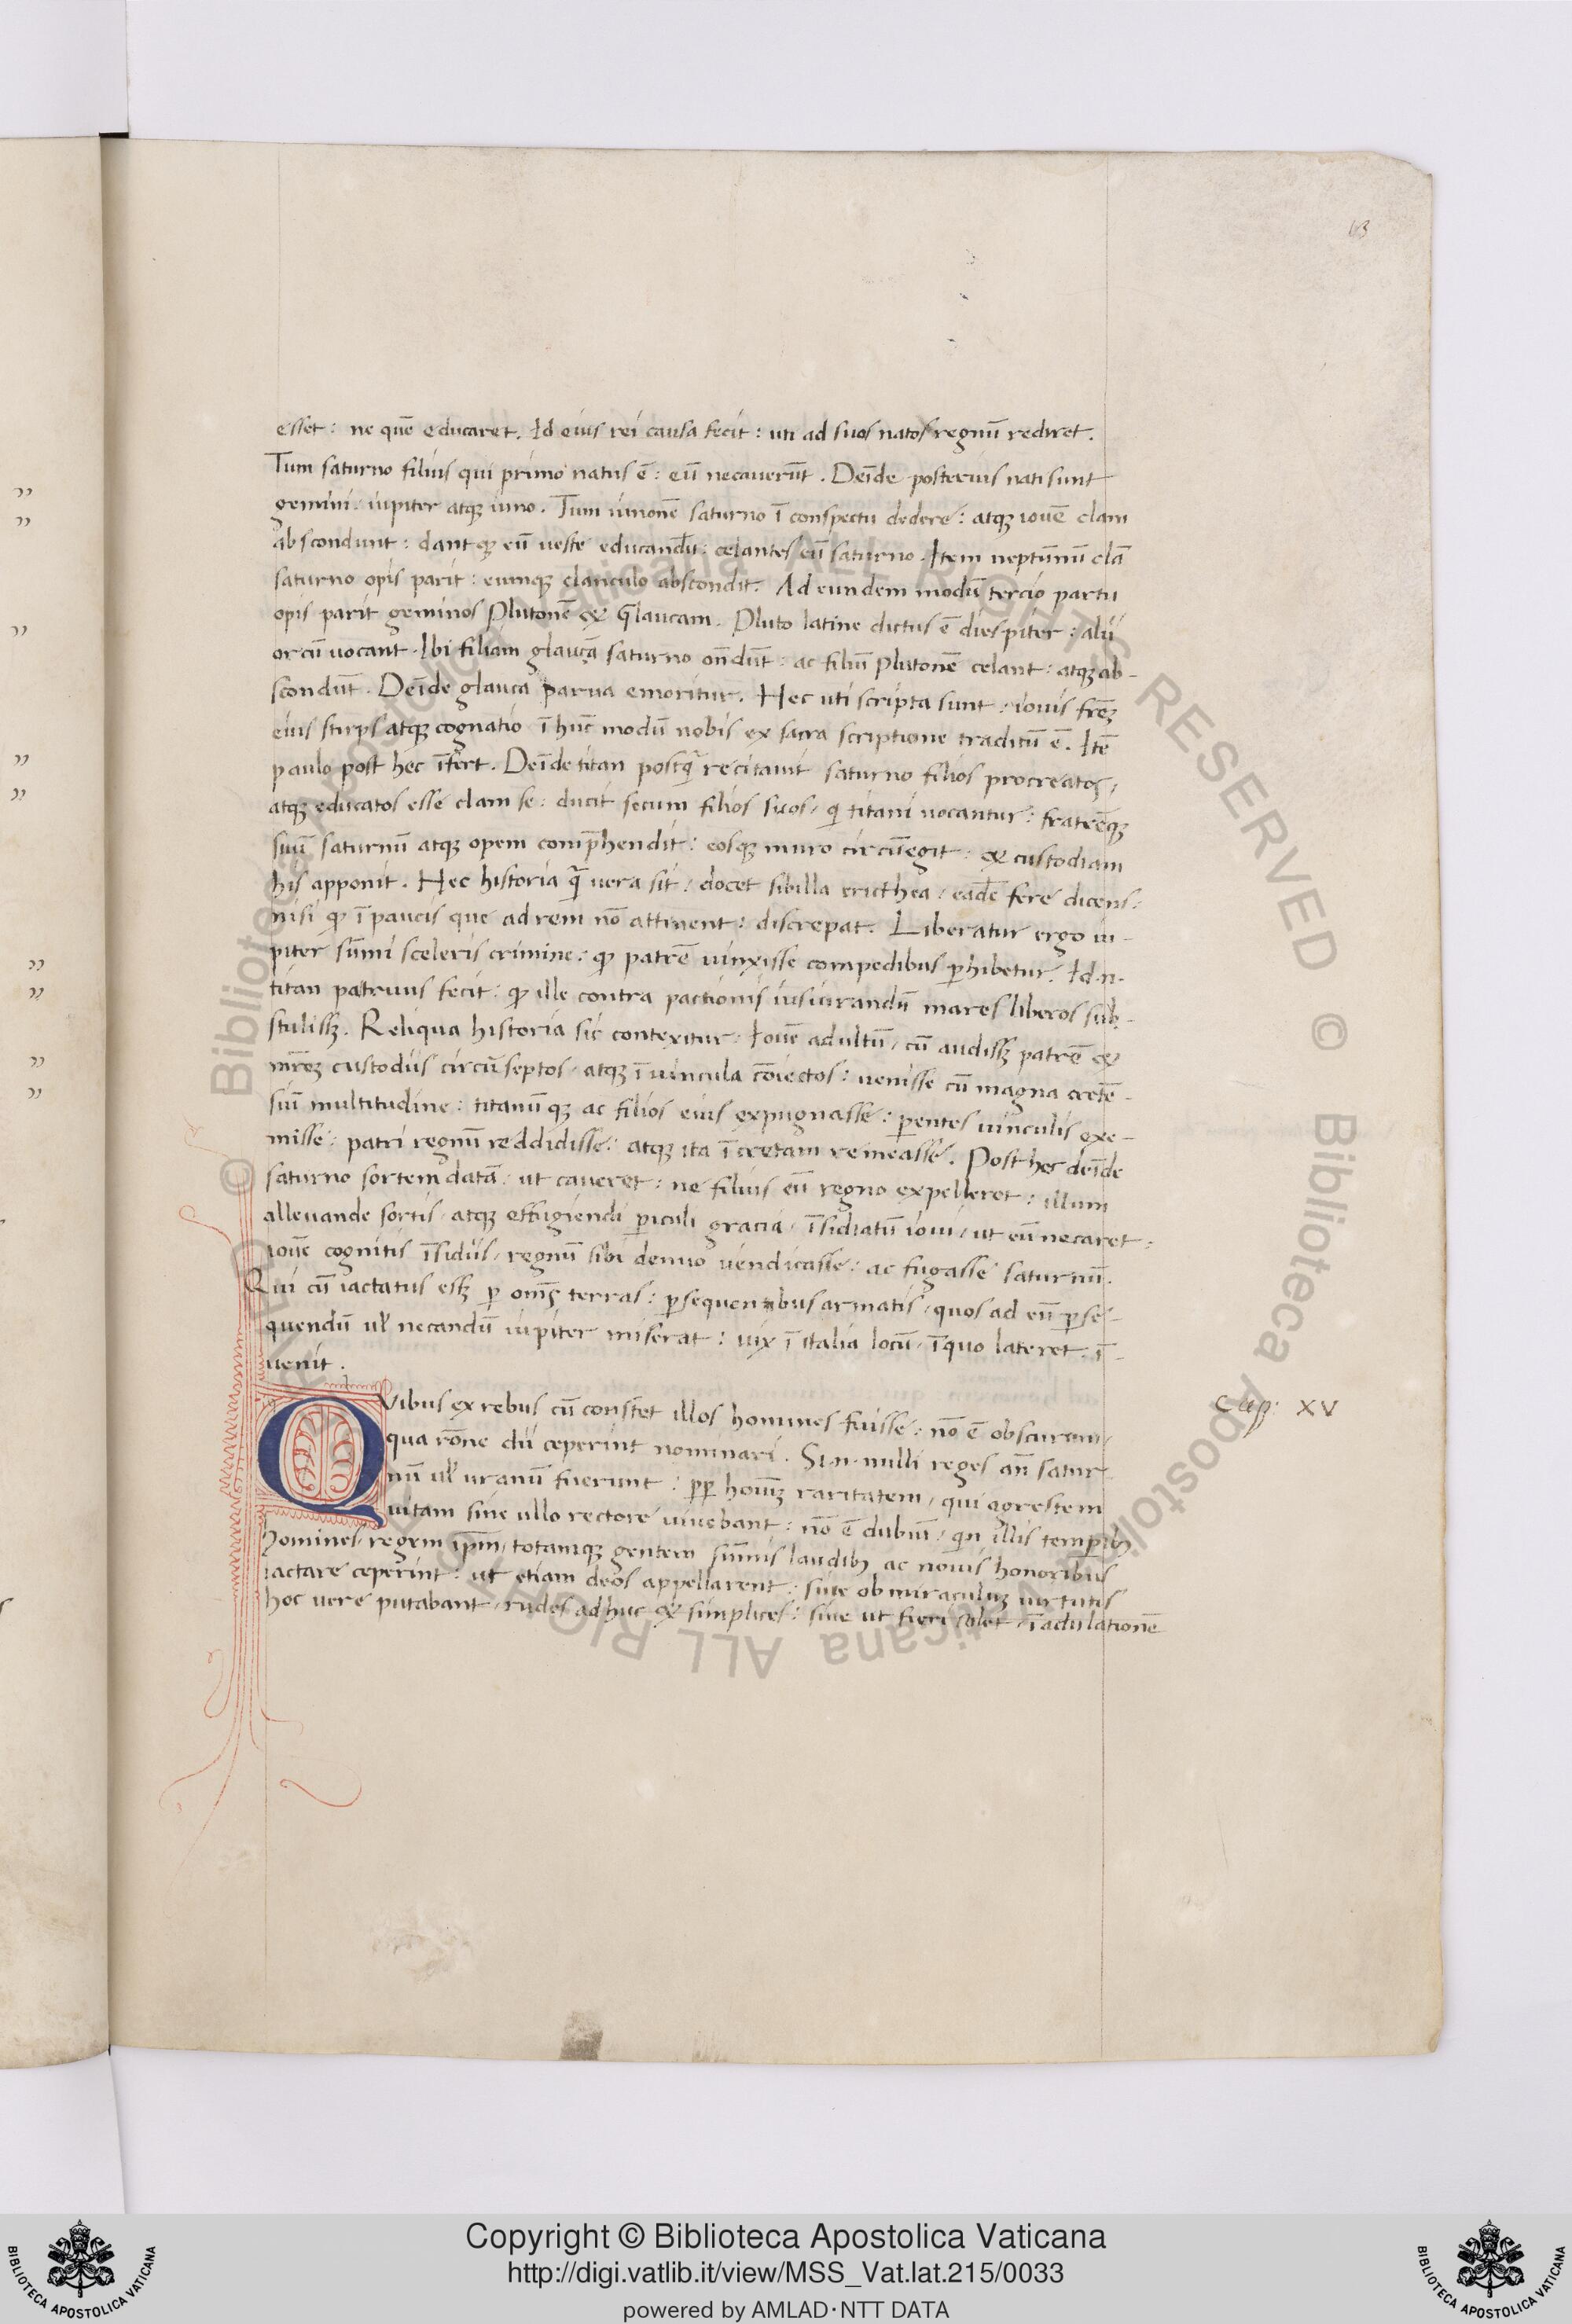 13
esset: ne quē educaret. Id eius rei causa fecit: uti ad suos natos regnū rediret.
Tum saturno filius qui primo natus ē: eū necauerūt. Deīde posterius nati sunt
gemini iupiter atqꝫ iuno. Tum iunonē saturno ī conspectu dedere: atqꝫ iouē clam
abscondunt: dantqꝫ eū ueste educandū: celantes eū saturno. Item neptūnū clā
saturno opis parit: eumqꝫ clanculo abscondit. Ad eundem modū tercio partu
opis parit geminos Plutonē & Glaucam. Pluto latine dictus ē diespiter: alii
orcū uocant. Ibi filiam glaucā saturno oñdūt: ac filiū plutonē celant: atqꝫ ab-
scondūt. Deīde glauca parua emoritur. Hec uti scripta sunt: iouis frēꝫ
eius stirps atqꝫ cognatio ī hūc modū nobis ex sacra scriptione traditū ē. Itē
paulo post hec īfert. Deīde titan postq̄ recitauit saturno filios procreatos,
atqꝫ educatos esse clam se: ducit secum filios suos, qi titani uocantur: fratrēqꝫ
suū saturnū atqꝫ opem comp̄hendit: eosqꝫ muro circūegit: & custodiam
his apponit. Hec historia q̄ uera sit, docet sibilla ericthea, eadē fere dicens:
nisi qꝫ ī paucis que ad rem nō attinent: discrepat. Liberatur ergo iu-
piter sūmi sceleris crimine: qꝫ patrē uinxisse compedibus ꝑhibetur. Id .n.
titan patruus fecit: qꝫ ille contra pactionis iusiurandū mares liberos sub-
stulissꝫ. Reliqua historia sic contexitur. Iouē adultū, cū audissꝫ patrē &
mr̄eꝫ custodiis circūseptos, atqꝫ ī uincula cōiectos: uenisse cū magna cretē-
siū multitudine: titanūqꝫ ac filios eius expugnasse: ꝑentes uinculis exe-
misse: patri regnū reddidisse: atqꝫ ita ī cretam remeasse. Post hec deīde
saturno sortem datā, ut caueret: ne filius eū regno expelleret: illum
alleuande sortis, atqꝫ effugiendi ꝑiculi gracia, īsidiatū ioui, ut eū necaret:
iouē cognitis īsidiis, regnū sibi denuo uendicasse: ac fugasse saturnū.
Qui cū iactatus essꝫ ꝑ omīs terras: ꝑsequentibus armatis, quos ad eū ꝑse-
quendū ul' necandū iupiter miserat: uix ī italia locū, ī quo lateret ī-
uenit.
Quibus ex rebus cū constet illos homines fuisse: nō ē obscurum,
qua rōne dii ceperint nominari. Si .n. nulli reges añ satur-
nū ul' uranū fuerunt: ꝓp hoīuꝫ raritatem, qui agrestem
uitam sine ullo rectore uiuebant: nō ē dubiū, qn illis temꝑibꝫ
homines, regem ip̄m, totamqꝫ gentem sūmis laudibꝫ ac nouis honoribus
iactare ceperint: ut etiam deos appellarent: siue ob miraculuꝫ uirtutis
hoc uere putabant, rudes adhuc & simplices: siue ut fieri solet, ī adulationē
Cap: XV
© Biblioteca Apostolica Vaticana ALL RIGHTS RESERVED © Biblioteca Apostolica Vaticana ALL RIGHTS RESERVED
Copyright © Biblioteca Apostolica Vaticana
http://digi.vatlib.it/view/MSS_Vat.lat.215/0033
powered by AMLAD·NTT DATA
BIBLIOTECA APOSTOLICA VATICANA
BIBLIOTECA APOSTOLICA VATICANA